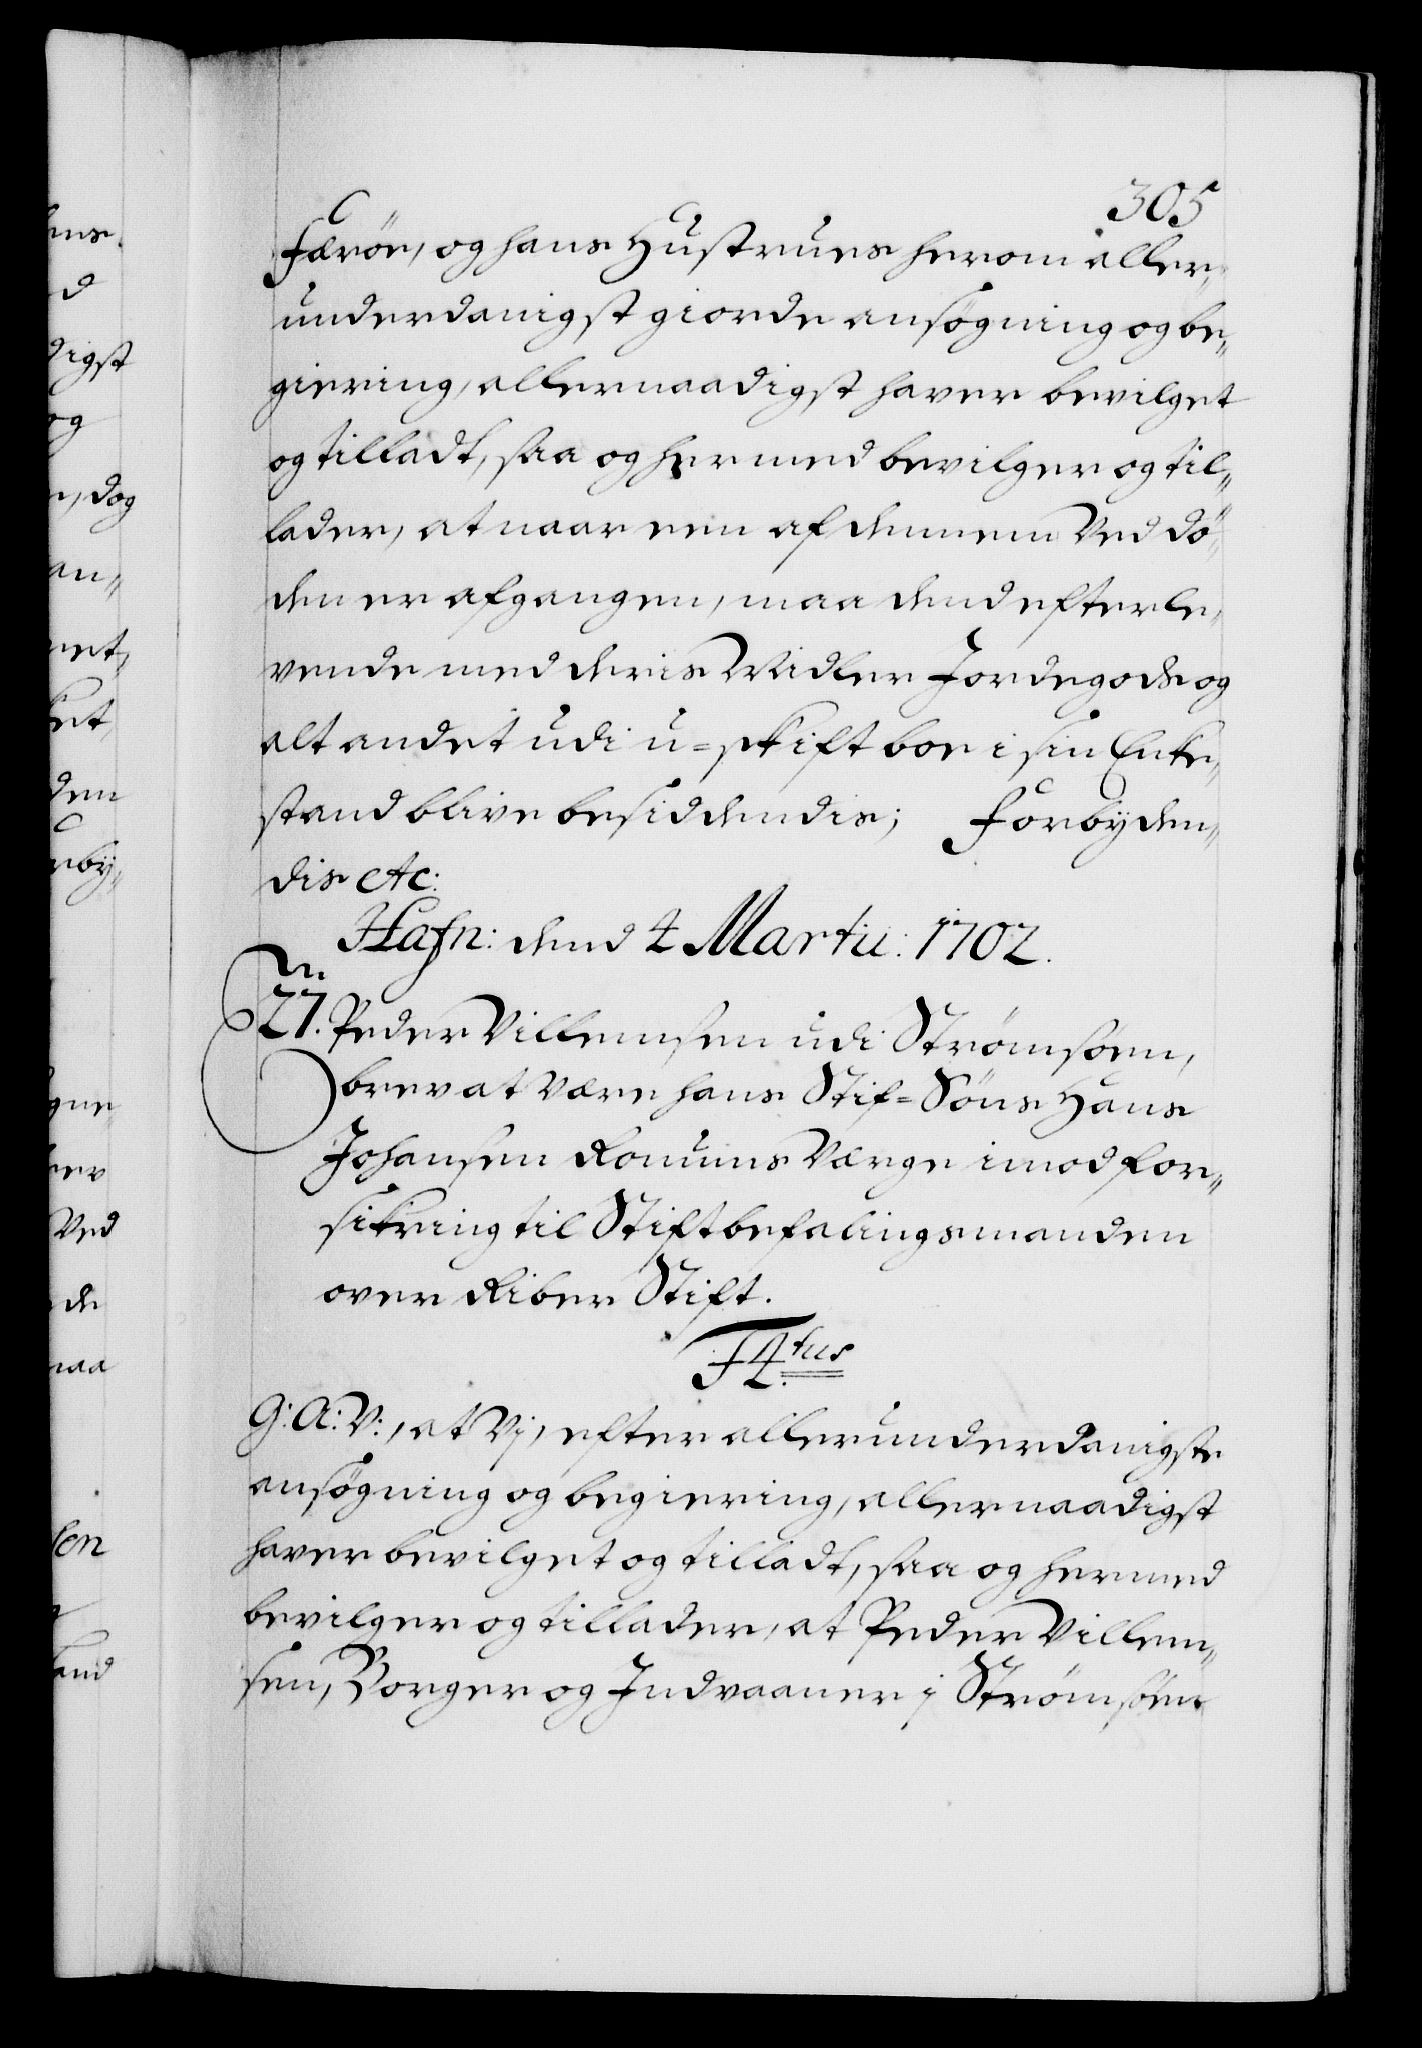 305
Færöe, og hans Hustrues herom aller„
underdanigst giorde ansögning og be„
giering, allernaadigst haver bevilget
og tilladt, saa og hermed bevilger og til„
lader, at naar een af dennem Ved dö„
den er afgangen, maa dend efterle„
vende med deris Midler Jordegods og
alt andet udi u=skift boe i sin Enke„
stand blive besiddendis; Forbyden„
dis etc:
Hafn: dend 4 Martii: 1702.
27. Peder Villemsen udi Strömsöen,
brev at være hans Stif=Söns Hans
Johansen Komums Værge imod for„
sikring til Stiftbefalingsmanden
over Riber Stift.
F4.tus
G: A: V:, at Vj, efter allerunderdanigste
ansögning og begiering, allernaadigst
haver bevilget og tilladt, saa og hermed
bevilger og tillader, at Peder Villem„
sen, Borger og Indvaaner i Strömsöen